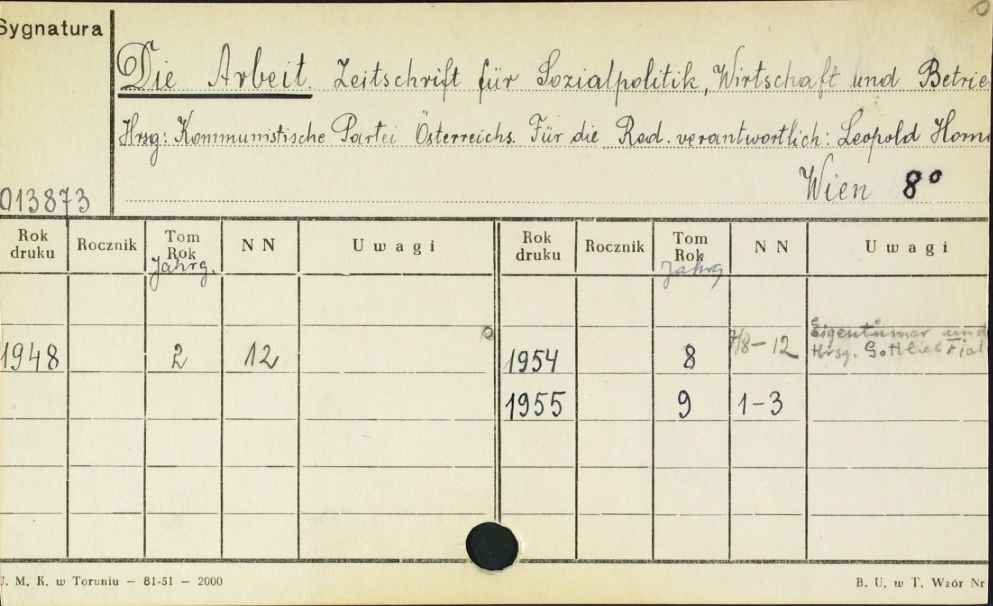 Sygnatura
Die Arbeit. Zeitschrift für Sozialpolitik, Wirtschaft und Betrie
Hrsg: Kommunistische Partei Österreichs. Für die Red. verantwortlich: Leopold Horn
Wien 8°
013873
Rok druku Rocznik Tom Rok Jahrg. NN Uwagi Rok druku Rocznik Tom Rok Jahrg NN Uwagi
Eigentümer und
1948 2 12 1954 8 7/8-12 Hrsg. Gottlieb Fial
1955 9 1-3
J. M. K. w Toruniu — 81-51 — 2000 B. U. w T. Wzór Nr